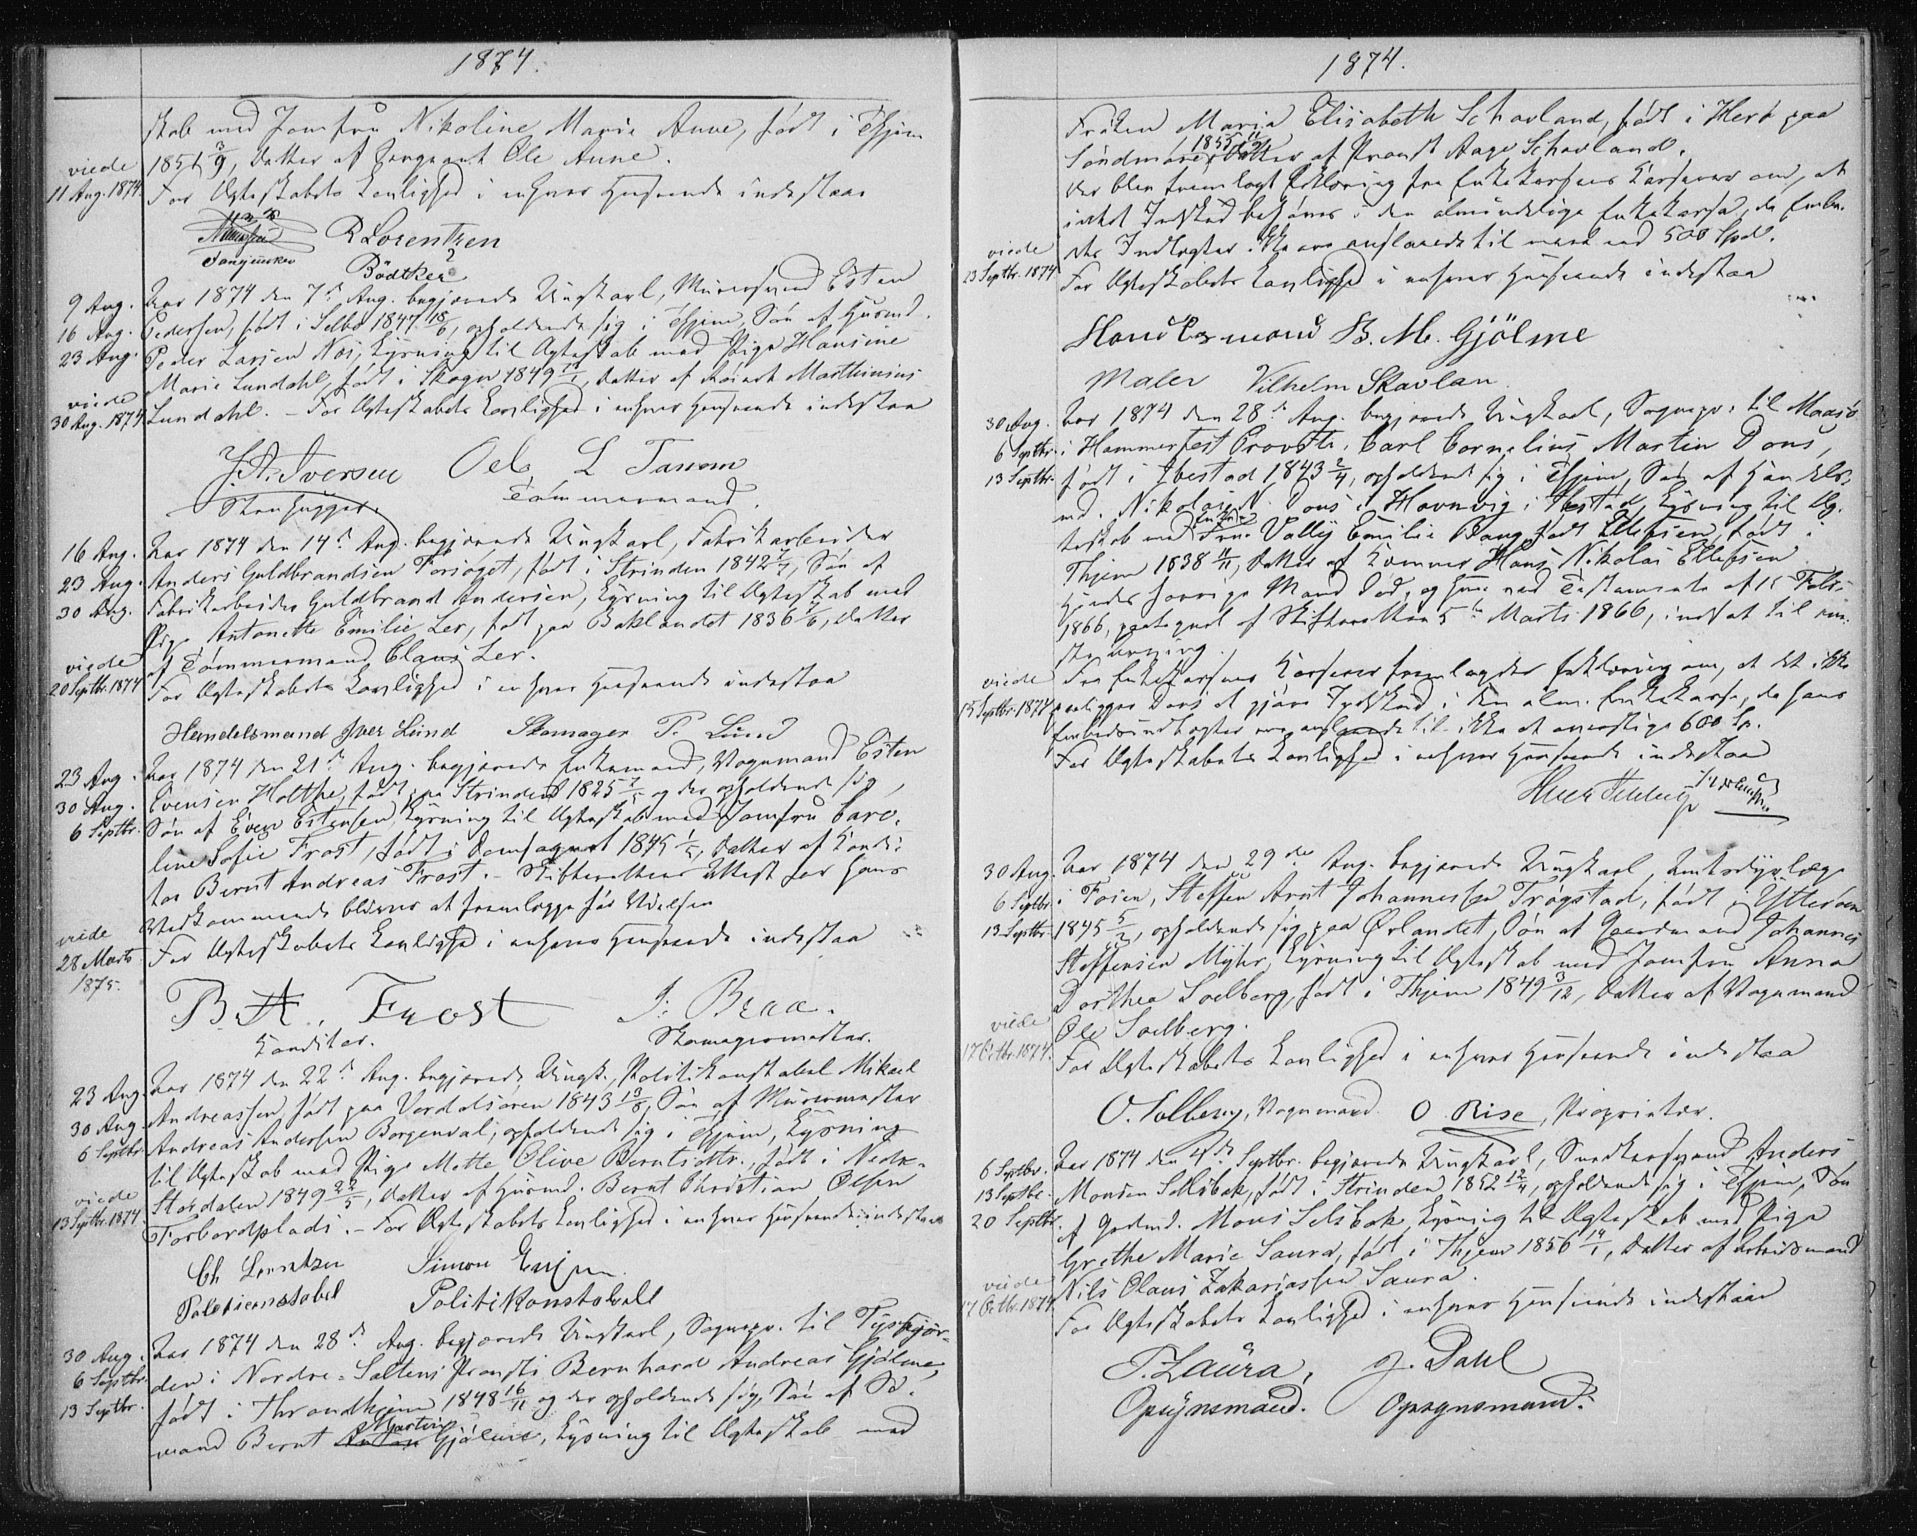 1874.
skab med Jomfru Nikoline Marie Aune, født i Thjem
1851 3/9, Datter af Sergeant Ole Aune.
viede
11 Aug. 1874
For Ægteskabets Lovlighed i enhver Henseende indestaa
R Lorentzen
Bødtker
9 Aug.
16 Aug.
23 Aug.
viede
30 Aug. 1874
Aar 1874 den 7de Aug. begjærede Ungkarl, Murersvend Esten
Pedersen, født i Selbo 1847 18/6, opholdende sig i Thjem, Søn af Husmd.
Peder Larsen Nos, Lysning til Ægteskab med Pige Hansine
Marie Lundahl, født i Skogn 1849, Datter af Marthinius
Lundahl. – For Ægteskabets Lovlighed i enhver Henseende indestaa
J. A. Iversen Ole L Tanem
Stenhugger. Tømmermand.
16 Aug.
23 Aug.
30 Aug.
viede
20 Septbr. 1874
Aar 1874 den 14de Aug. begjærede Ungkarl, Fabrikarbeider
Anders Guldbrandsen, født i Strinden 1842, Søn af
Fabrikarbeider Guldbrand Andersen, Lysning til Ægteskab med
Pige Antonette Emilie Ler, født paa Baklandet 1836, Datter
af Tømmermand Claus Ler.
For Ægteskabets Lovlighed i enhver Henseende indestaa
Handelsmand Iver Lund Skomager P. Lund
23 Aug.
30 Aug.
6 Septbr.
viede
28 Marts
1875.
Aar 1874 den 21de Aug. begjærede Enkemand, Vognmand Esten
Evensen Holthe, født paa Strinden 1825 og der opholdende sig,
Søn af Even Estensen, Lysning til Ægteskab med Jomfru Caro-
line Sofie Frost, født i Domsognet 1845, Datter af Kondi-
tor Bernt Andreas Frost. – Skifterettens Attest for hans
Vedkommende bliver at fremlægge før Vielsen
For Ægteskabets Lovlighed i enhver Henseende indestaa
B. A. Frost J. Braa.
Konditor. Skomagermester.
23 Aug.
30 Aug.
6 Septbr.
viede
13 Septbr. 1874.
Aar 1874 den 22de Aug. begjærede Ungk., Politikonstabel Mikael
Andreassen, født paa Verdalsøren 1843 13/8, Søn af Murermester
Andreas Andersen Borgenval, opholdende sig i Thjem, Lysning
til Ægteskab med Pige Mette Olive Berntsdtr., født i Nedre-
Stordalen 1849, Datter af Husmd. Bernt Christian Olsen
Forbordplads. – For Ægteskabets Lovlighed i enhver Henseende indestaa
Ch Lorentzen Simon
Politiconstabel Politikonstabell
30 Aug.
6 Septbr.
13 Septbr.
Aar 1874 den 28de Aug. begjærede Ungkarl, Sognepr. til Tysfjor-
den i Nordre-Saltens Provsti Bernhard Andreas Gjølme,
født i Throndhjem 1848 16/11 og der opholdende sig, Søn af Sø-
mand Bernt Martin Gjølme, Lysning til Ægteskab med
1874.
Frøken Maria Elisabeth Schavland, født i Herø paa
Søndmøre 1853, Datter af Provst Aage Schavland.
Der blev fremlagt Erklæring fra Enkekassens Kasserer om, at
intet Indskud behøves i den almindelige Enkekasse, da Embe-
dets Indtægter ikke ere anslaaede til mere end 500 Spd.
viede
13 Septbr. 1874
For Ægteskabets Lovlighed i enhver Henseende indestaa
Handelsmand B. M. Gjølme
Maler Vilhelm Skavlan.
30 Aug.
6 Septbr.
13 Septbr.
Aar 1874 den 28de Aug. begjærede Ungkarl, Sognepr. til Maasø
i Hammerfest Provsti, Carl Cornelius Martin Dons,
født i Ibestad 1843 2/4, opholdende sig i Thjem, Søn af Handels-
md. Nikolai N. Dons i Havnvig i Ibestad, Lysning til Æg-
teskab med Enkefrue Vally Emilie Bang født Ellefsen, født i
Thjem 1838, Datter af Hans Nikolai Ellefsen
Hendes forrige Mand død, og hun ved Testamente af 15 Febr.
1866, paategnet af Skifteretten 5te Marts 1866, indsat til uni-
versalarving.
viede
15 Septbr. 1874
Fra Enkekassens Kasserer fremlagdes Erklæring om, at det ikke
paaligger Dons at gjøre Indskud i den alm. Enkekasse, da hans
Embedsindtægter ere anslaaede til ikke at overstige 600 Sp.
For Ægteskabets Lovlighed i enhver Henseende indestaa
30 Aug.
6 Septbr.
13 Septbr.
Aar 1874 den 29de Aug. begjærede Ungkarl, Amtsdyrlæge
i Fosen, Steffen Arnt Johannessen Trøgstad, født i Ytterøen
1845, opholdende sig paa Ørlandet, Søn af Gaardmand Johannes
Steffensen Myhr, Lysning til Ægteskab med Jomfru Anna
Dorthea Solberg, født i Thjem 1849 3/12, Datter af Vognmand
Ole Solberg.
viede
17 Octbr. 1874.
For Ægteskabets Lovlighed i enhver Henseende indestaa
O. Solberg, Vognmand. O. Rise, Proprietær.
6 Septbr.
13 Septbr.
20 Septbr.
Aar 1874 den 4de Septbr. begjærede Ungkarl, Snedkersvend Anders
Monsen Selsbak, født i Strinden 1852 12/4, opholdende sig i Thjem, Søn
af Gaardmd. Mons Selsbak, Lysning til Ægteskab med Pige
Grethe Marie Saura, født i Thjem 1856 14/1, Datter af Arbeidsmand
Nils Olaus Zakariassen Saura.
viede
17 Octbr. 1874
For Ægteskabets Lovlighed i enhver Henseende indestaa
T. Laura, J. Dahl
Opsynsmand. Opsynsmand.